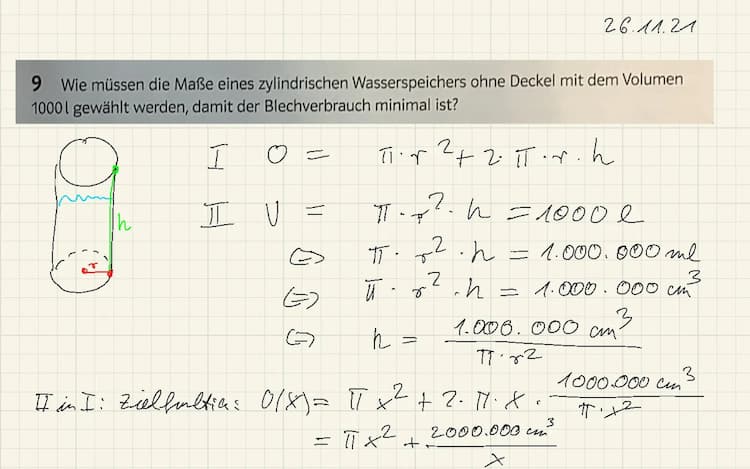 26.11.21
9 Wie müssen die Maße eines zylindrischen Wasserspeichers ohne Deckel mit dem Volumen
1000 l gewählt werden, damit der Blechverbrauch minimal ist?
I O = π · r² + 2 · π · r · h
II V = π · r² · h = 1000 l
⇔ π · r² · h = 1.000.000 ml
h
r
⇔ π · r² · h = 1.000.000 cm³
⇔ h = 1.000.000 cm³ / π · r²
II in I: Zielfunktion: O(x) = π x² + 2 · π · x · 1000.000 cm³ / π · x²
= π x² + 2000.000 cm³ / x